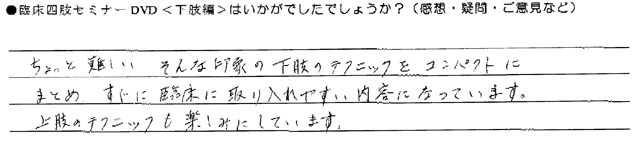 ●臨床四肢セミナーDVD＜下肢編＞はいかがでしたでしょうか？（感想・疑問・ご意見など）
ちょっと難しい そんな印象の下肢のテクニックをコンパクトに
まとめ すぐに臨床に取り入れやすい内容になっています。
上肢のテクニックも楽しみにしています。